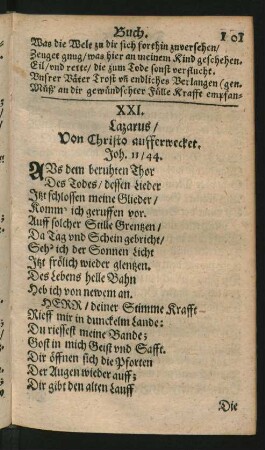 Buch. 101
Was die Welt zu dir sich forthin zuversehen/
Zeuget gnug/ was hier an meinem Kind geschehen.
Eil/ und rette/ die zum Tode sonst verflucht.
Unsrer Väter Trost uñ endliches Verlangen (gen.
Müß' an dir gewündschter Fülle Krafft empfan-
XXI.
Lazarus/
Von Christo aufferwecket.
Joh. 11/44.
AUs dem beruhten Thor
Des Todes/ dessen Lieder
Itzt schlossen meine Glieder/
Komm' ich geruffen vor.
Auff solcher Stille Grentzen/
Da Tag und Schein gebricht/
Seh' ich der Sonnen Licht
Itzt frölich wieder glentzen.
Des Lebens helle Bahn
Heb ich von newem an.
HERR/ deiner Stimme Krafft
Rieff mir in dunckelm Lande:
Du riessest meine Bande;
Gost in mich Geist und Safft.
Dir öffnen sich die Pforten
Der Augen wieder auff;
Dir gibt den alten Lauff
Die